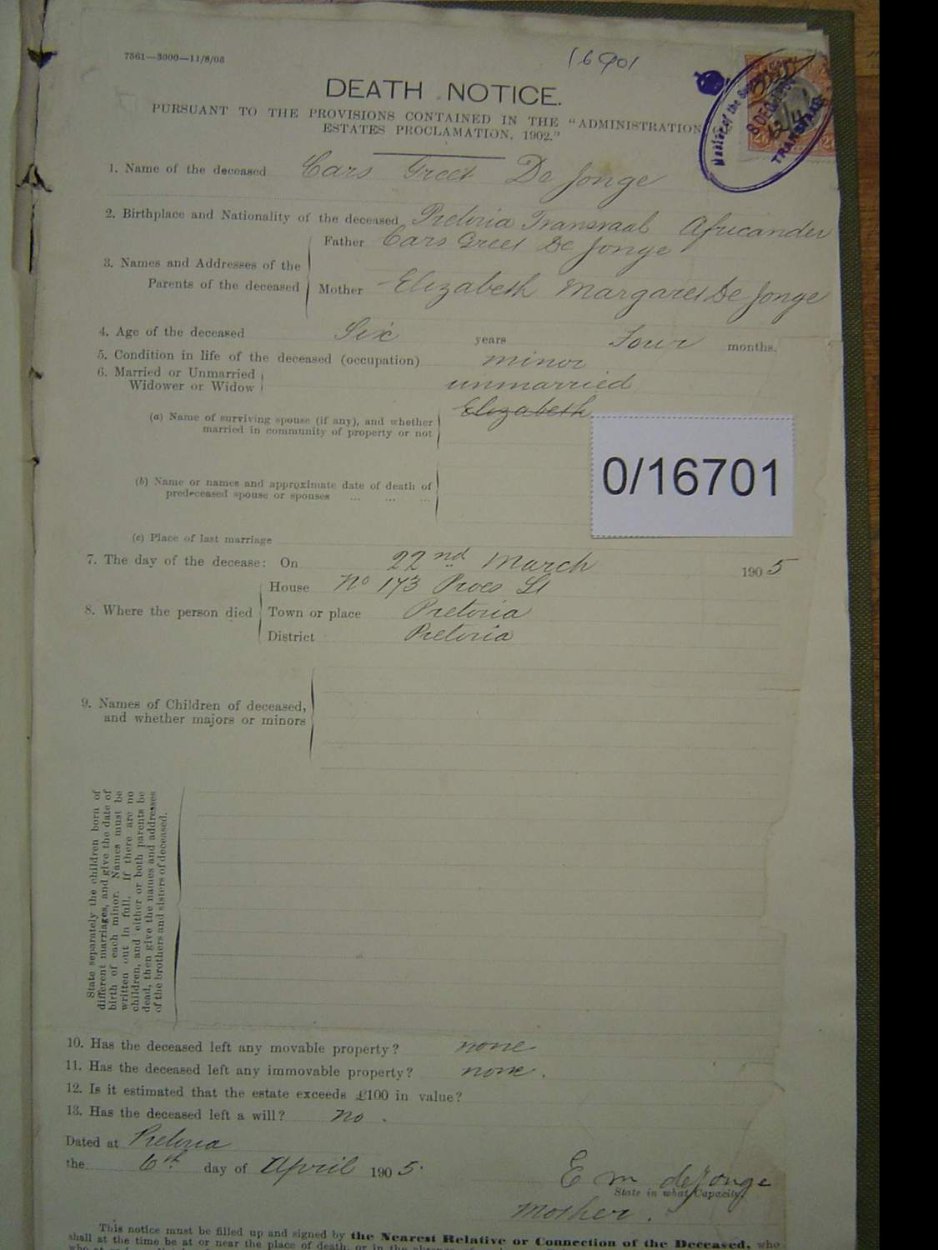 7561—3000—11/8/03
16701
DEATH NOTICE.
PURSUANT TO THE PROVISIONS CONTAINED IN THE "ADMINISTRATION
ESTATES PROCLAMATION, 1902."
Master of the Supreme
8 DEC
TRANSVAAL
1. Name of the deceased Cars Greet De Jonge
2. Birthplace and Nationality of the deceased Pretoria Transvaal Africander
3. Names and Addresses of the Parents of the deceased
Father Cars Greet De Jonge
Mother Elizabeth Margaret De Jonge
4. Age of the deceased Six years Four months.
5. Condition in life of the deceased (occupation) minor
6. Married or Unmarried
Widower or Widow unmarried
Elizabeth
(a) Name of surviving spouse (if any), and whether
married in community of property or not
0/16701
(b) Name or names and approximate date of death of
predeceased spouse or spouses ... ... ...
(c) Place of last marriage
7. The day of the decease: On 22nd March 1905
8. Where the person died
House No 173 Proes St
Town or place Pretoria
District Pretoria
9. Names of Children of deceased,
and whether majors or minors
State separately the children born of
different marriages, and give the date of
birth of each minor. Names must be
written out in full. If there are no
children, and either or both parents be
dead, then give the names and addresses
of the brothers and sisters of deceased.
10. Has the deceased left any movable property? none
11. Has the deceased left any immovable property? none.
12. Is it estimated that the estate exceeds £100 in value?
13. Has the deceased left a will? no.
Dated at Pretoria
the 6th day of April 1905.
E m deJonge
State in what Capacity.
Mother.
This notice must be filled up and signed by the Nearest Relative or Connection of the Deceased, who
shall at the time be at or near the place of death